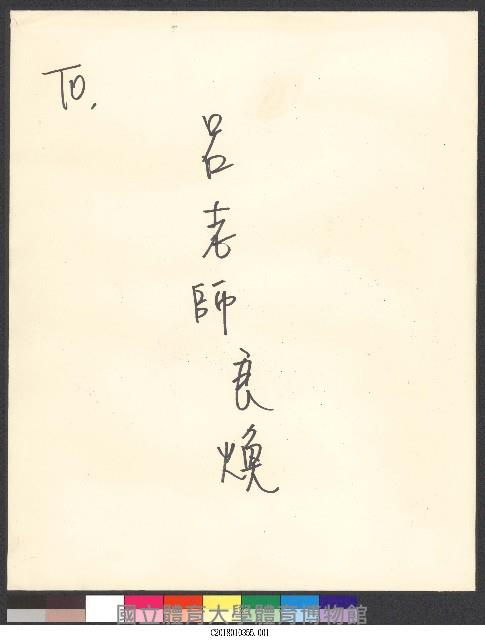 To,
呂老師良煥
國立體育大學體育博物館
C2018010355.001